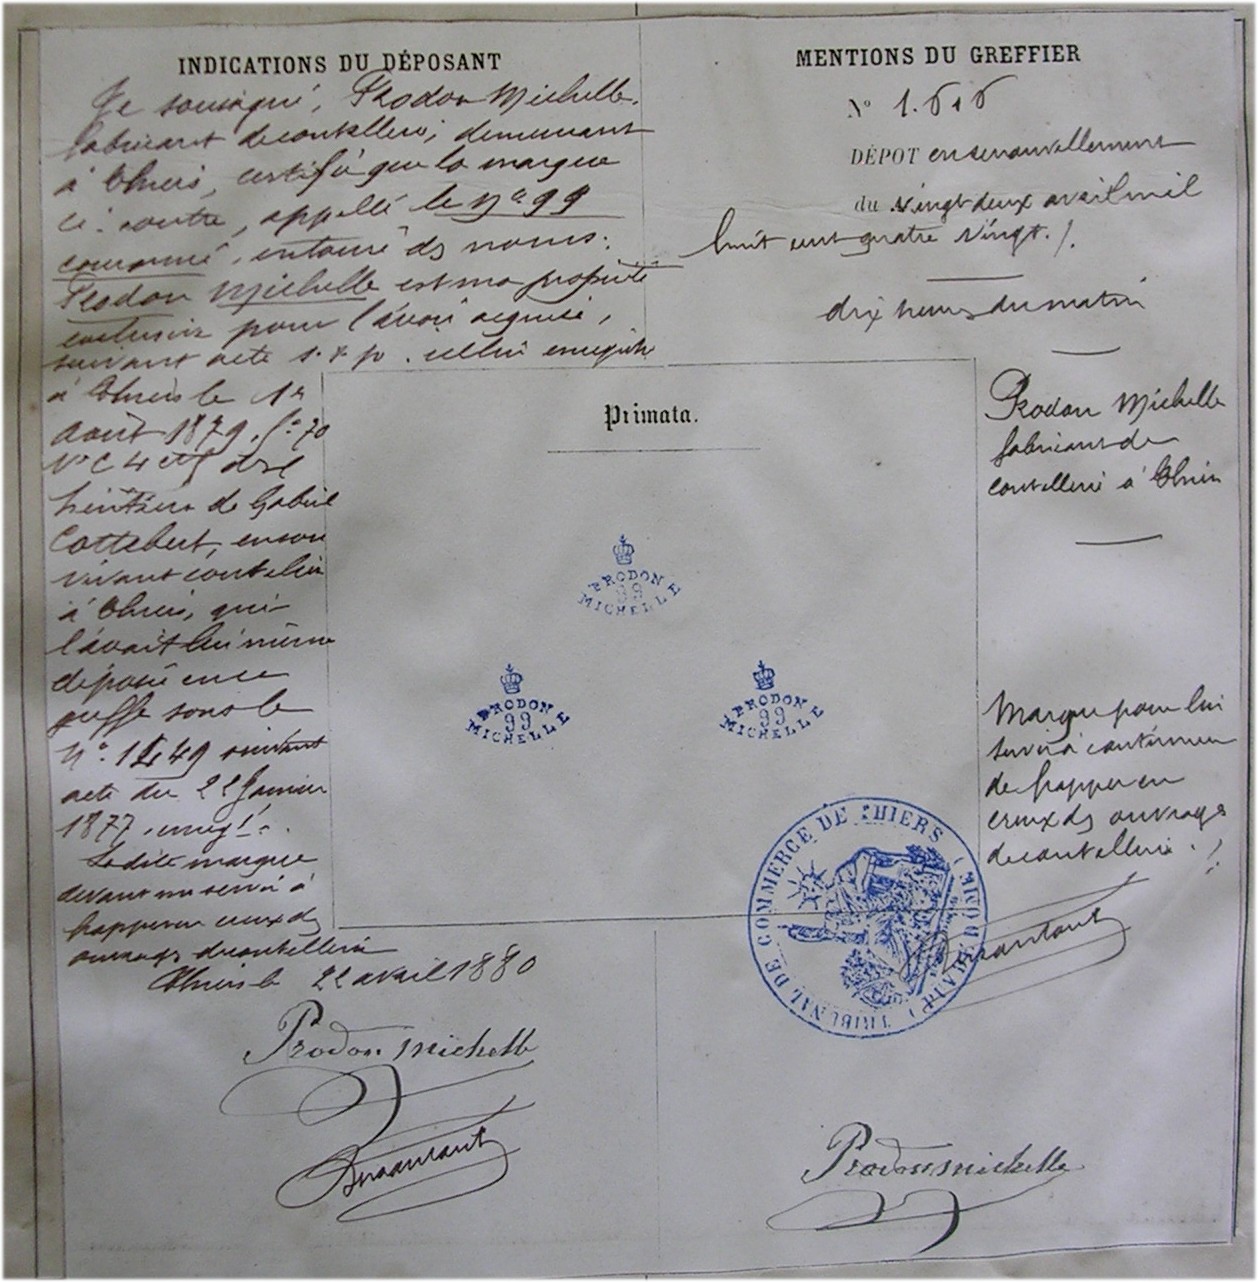 INDICATIONS DU DÉPOSANT
Je soussigné, Prodon Michelle,
fabricant de coutellerie, demeurant
à Thiers, certifie que la marque
ci-contre, appellé le No 99
couronné, entouré des noms:
Prodon Michelle est ma propriété
exclusive pour l'avoir acquise,
suivant acte s.s.p. enregistré
à Thiers le 1er
Août 1879, fo 70
No C 4 des
héritiers de Gabriel
Cottebert, en son
vivant coutelier
à Thiers, qui
l'avait lui même
déposée en ce
greffe sous le
No. 1249 suivant
acte du 22 Janvier
1877, enregt.
Ladite marque
devant me servir à
frapper en creux des
ouvrages de coutellerie
Thiers le 22 avril 1880
Prodon Michelle
MENTIONS DU GREFFIER
No 1.616
DÉPOT en renouvellement
du vingt deux avril mil
huit cent quatre vingt.
dix heures du matin
Prodon Michelle
fabricant de
coutellerie à Thiers
Marque pour lui
servir à continuer
de frapper en
creux des ouvrages
de coutellerie.
Prodon Michelle
Primata.
PRODON
99
MICHELLE
PRODON
99
MICHELLE
PRODON
99
MICHELLE
TRIBUNAL DE COMMERCE DE THIERS